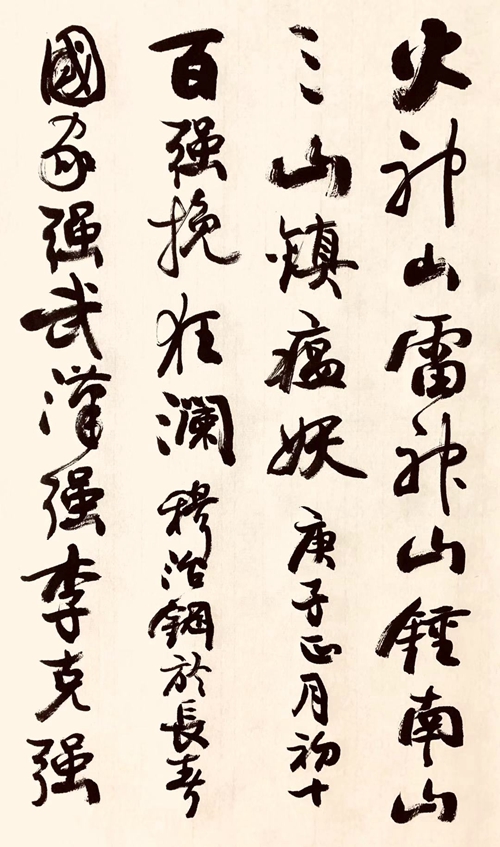 火神山雷神山鍾南山
三山鎮瘟妖 庚子正月初十
國家强武漢强李克强
百强挽狂瀾 穆治鋼於長春